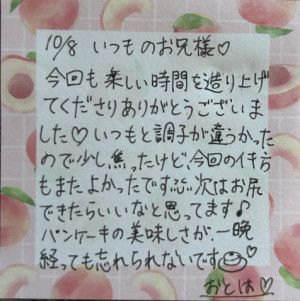 10/8 いつものお兄様♡
今回も楽しい時間を造り上げ
てくださりありがとうございま
した♡いつもと調子が違うかった
ので少し焦ったけど、今回のイキ方
もまたよかったです。次はお尻
できたらいいなと思ってます♪
パンケーキの美味しさが、一晩
経っても忘れられないです
おとは♡